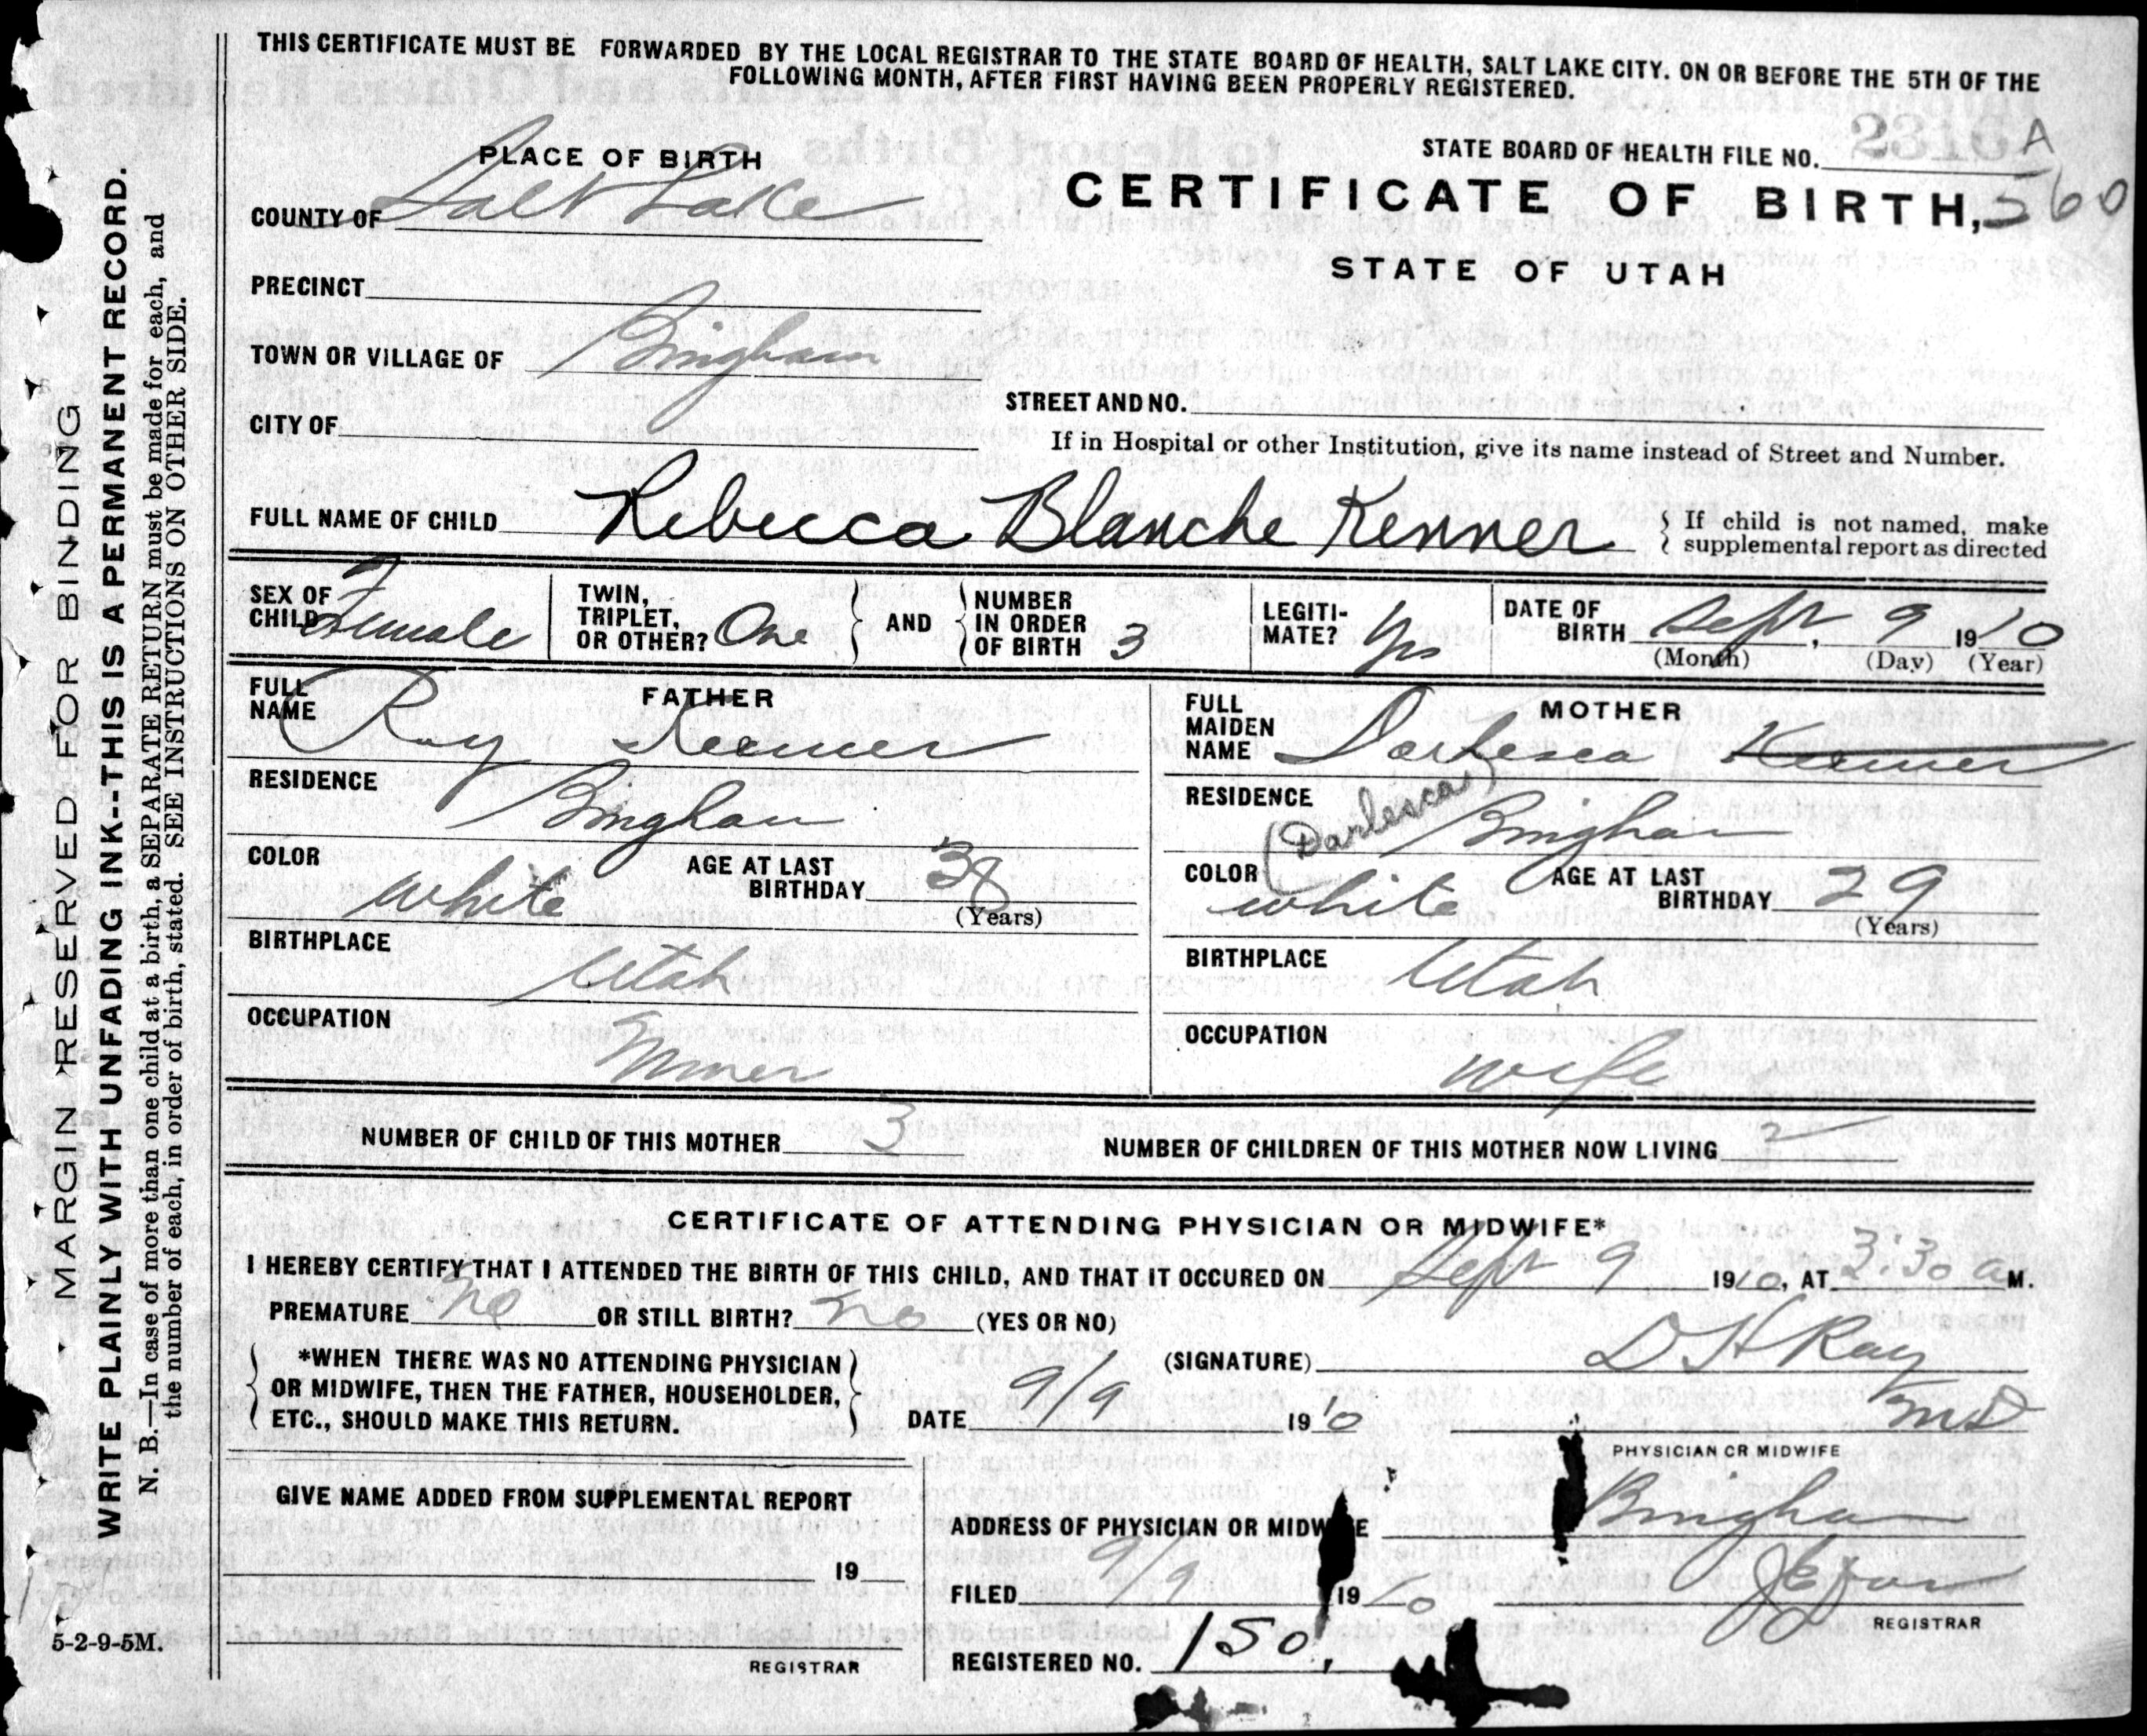 THIS CERTIFICATE MUST BE FORWARDED BY THE LOCAL REGISTRAR TO THE STATE BOARD OF HEALTH, SALT LAKE CITY. ON OR BEFORE THE 5TH OF THE
FOLLOWING MONTH, AFTER FIRST HAVING BEEN PROPERLY REGISTERED.
MARGIN RESERVED FOR BINDING
WRITE PLAINLY WITH UNFADING INK--THIS IS A PERMANENT RECORD.
N. B.—In case of more than one child at a birth, a SEPARATE RETURN must be made for each, and
the number of each, in order of birth, stated. SEE INSTRUCTIONS ON OTHER SIDE.
5-2-9-5M.
PLACE OF BIRTH
STATE BOARD OF HEALTH FILE NO. A
COUNTY OF Salt Lake
CERTIFICATE OF BIRTH, 560
STATE OF UTAH
PRECINCT
TOWN OR VILLAGE OF Bingham
STREET AND NO.
CITY OF
If in Hospital or other Institution, give its name instead of Street and Number.
FULL NAME OF CHILD Rebecca Blanche Kenner
If child is not named, make
supplemental report as directed
SEX OF CHILD Female
TWIN, TRIPLET, OR OTHER? One
AND
NUMBER IN ORDER OF BIRTH 3
LEGITI- MATE? Yes
DATE OF BIRTH Sept, 9 1910
(Month) (Day) (Year)
FATHER
FULL NAME Ray Kenner
RESIDENCE Bingham
COLOR white
AGE AT LAST BIRTHDAY 38
(Years)
BIRTHPLACE Utah
OCCUPATION Miner
MOTHER
FULL MAIDEN NAME Darlesca Kenner
(Darlesca)
RESIDENCE Bingham
COLOR white
AGE AT LAST BIRTHDAY 29
(Years)
BIRTHPLACE Utah
OCCUPATION wife
NUMBER OF CHILD OF THIS MOTHER 3
NUMBER OF CHILDREN OF THIS MOTHER NOW LIVING 2
CERTIFICATE OF ATTENDING PHYSICIAN OR MIDWIFE*
I HEREBY CERTIFY THAT I ATTENDED THE BIRTH OF THIS CHILD, AND THAT IT OCCURED ON Sept 9 1910, AT 3:30 a M.
PREMATURE no OR STILL BIRTH? no (YES OR NO)
*WHEN THERE WAS NO ATTENDING PHYSICIAN
OR MIDWIFE, THEN THE FATHER, HOUSEHOLDER,
ETC., SHOULD MAKE THIS RETURN.
(SIGNATURE) D H Ray
DATE 9/9 1910
MD
PHYSICIAN OR MIDWIFE
GIVE NAME ADDED FROM SUPPLEMENTAL REPORT
19
REGISTRAR
ADDRESS OF PHYSICIAN OR MIDWIFE Bingham
FILED 9/9 1910
REGISTRAR
REGISTERED NO. 150